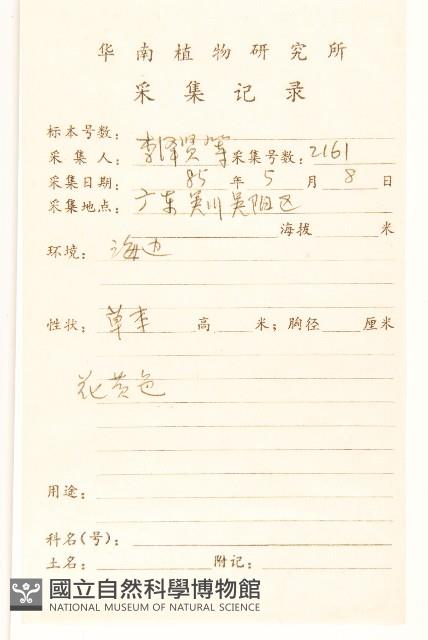 华南植物研究所
采集记录
标本号数:
采集人: 李泽贤等 采集号数: 2161
采集日期: 85 年 5 月 8 日
采集地点: 广东吴川吴阳区
海拔 米
环境: 海边
性状: 草本 高 米; 胸径 厘米
花黄色
用途:
科名(号):
土名: 附记:
國立自然科學博物館
NATIONAL MUSEUM OF NATURAL SCIENCE